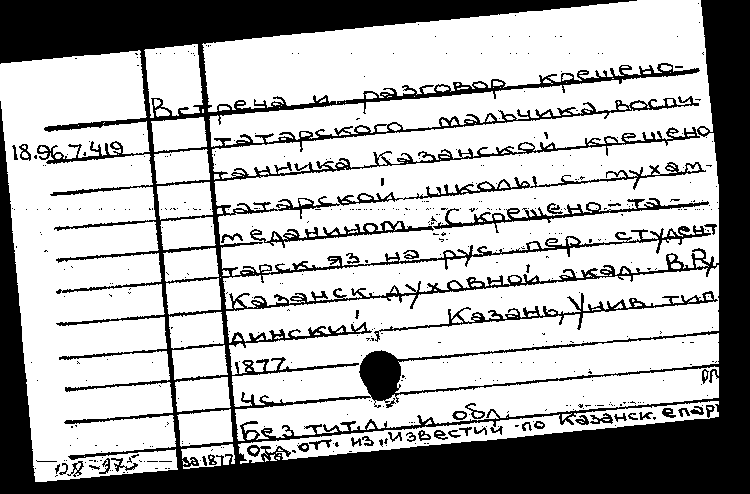 Встреча и разговор крещено-
18.96.7.419
татарского мальчика, воспи-
танника Казанской крещено
татарской школы с мухам-
меданином. С крещено-та-
тарск. яз. на рус. пер. студент
Казанск. духовной акад. В. Ру
динский. Казань, Унив. тип
1877.
4 с.
Без тит. л. и обл.
Отд. отт. из „Известий по Казанск. епар
за 1877